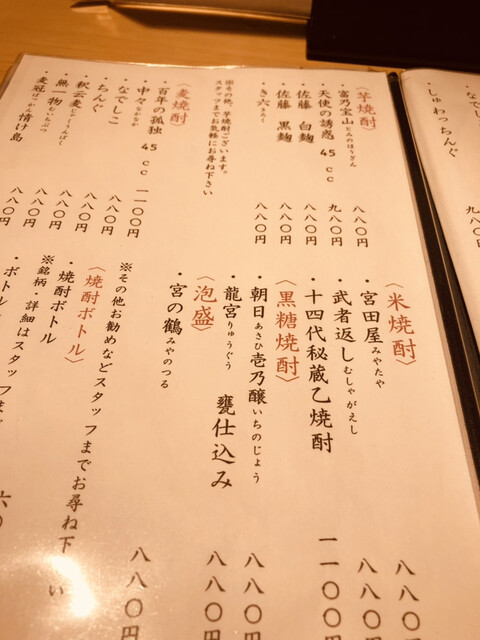 ・なでし
・しゅわっちんぐ
九八〇円
〈芋焼酎〉
・富乃宝山 とみのほうざん 八八〇円
・天使の誘惑 45cc 九八〇円
・佐藤 白麹 八八〇円
・佐藤 黒麹 八八〇円
・き六 きろく 八八〇円
※その他、芋焼酎ございます。
スタッフまでお気軽にお尋ね下さい
〈麦焼酎〉
・百年の孤独 45cc 一一〇〇円
・中々 なかなか 八八〇円
・なでしこ 八八〇円
・ちんぐ 八八〇円
・釈云麦 しゃくうんばく 八八〇円
・無一物 むいちぶつ 八八〇円
・麦冠 ばっかん 情け島 八八〇円
〈米焼酎〉
・宮田屋 みやたや 八八〇
・武者返し むしゃがえし 八八〇
・十四代秘蔵乙焼酎 一一〇〇
〈黒糖焼酎〉
・朝日 あさひ 壱乃醸 いちのじょう 八八〇
・龍宮 りゅうぐう 甕仕込み 八八〇
〈泡盛〉
・宮の鶴 みやのつる 八八〇円
※その他お勧めなどスタッフまでお尋ね下さい
〈焼酎ボトル〉
・焼酎ボトル
※銘柄・詳細はスタッフま
ボトル